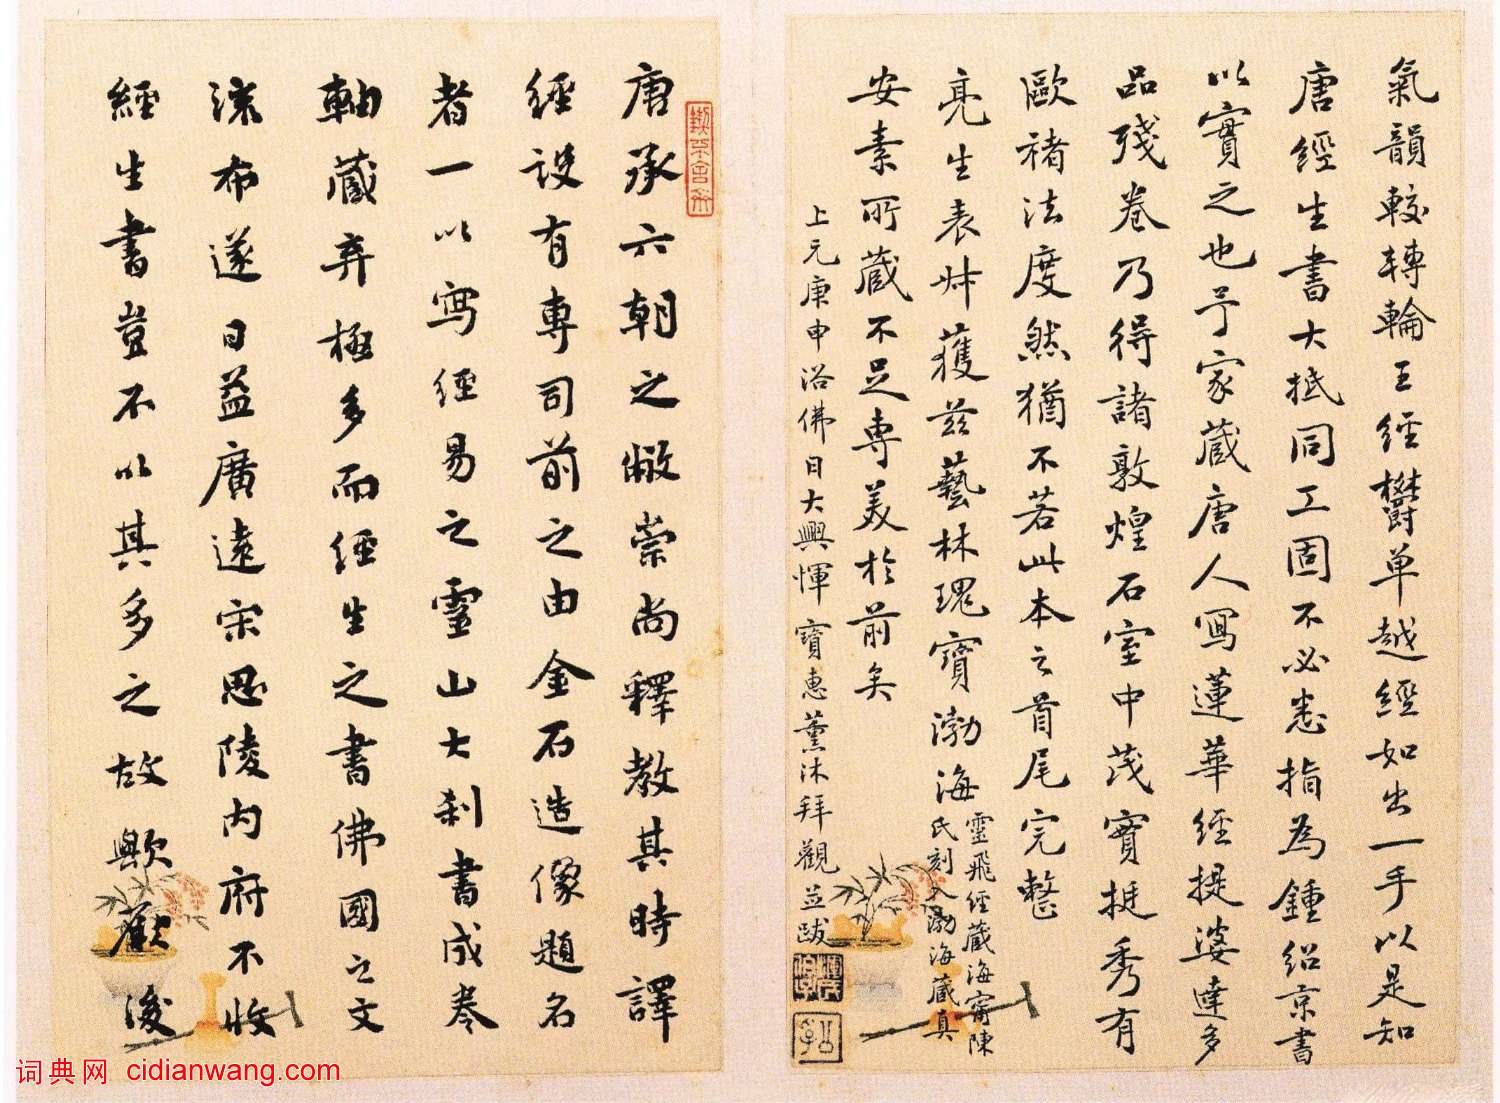 氣韻較轉輪王經欝單越經如出一手以是知
唐經生書大抵同工固不必悉指為鍾紹京書
以實之也予家藏唐人寫蓮華經提婆達多
品殘卷乃得諸敦煌石室中茂實挺秀有
歐褚法度然猶不若此本之首尾完整
亮生表叔獲茲藝林瑰寶渤海
靈飛經藏海甯陳
氏刻入渤海藏真
安素所藏不足專美於前矣
上元庚申浴佛日大興惲寶惠薰沐拜觀並跋
唐承六朝之敝崇尚釋教其時譯
經設有專司前之由金石造像題名
者一以寫經易之靈山大刹書成卷
軸藏弆極多而經生之書佛國之文
流布遂日益廣遠宋思陵內府不收
經生書豈不以其多之故歟歡後
词典网 cidianwang.com